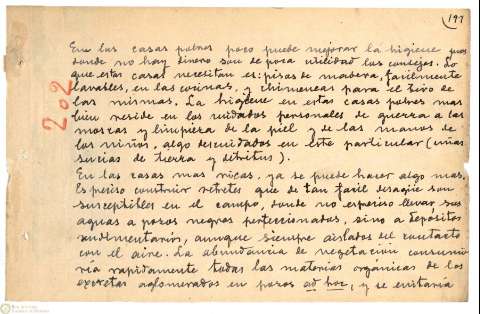 197
202
En las casas pobres poco puede mejorar la higiene pues
donde no hay dinero son de poca utilidad los consejos. Lo
que estas casas necesitan es: pisos de madera, facilmente
lavables, en las cocinas, y chimeneas para el tiro de
las mismas. La higiene en estas casas pobres mas
bien reside en los cuidados personales de guerra a las
moscas y limpieza de la piel y de las manos de
los niños, algo descuidados en este particular (uñas
sucias de tierra y detritus).
En las casas mas ricas, ya se puede hacer algo mas.
Es preciso construir retretes que de tan facil desagüe son
susceptibles en el campo, donde no es preciso llevar sus
aguas a pozos negros perfeccionados, sino a depósitos
rudimentarios, aunque siempre aislados del contacto
con el aire. La abundancia de vegetación consumi
ría rapidamente todas las materias orgánicas de los
excretas aglomerados en pozos ad hoc, y se evitaría